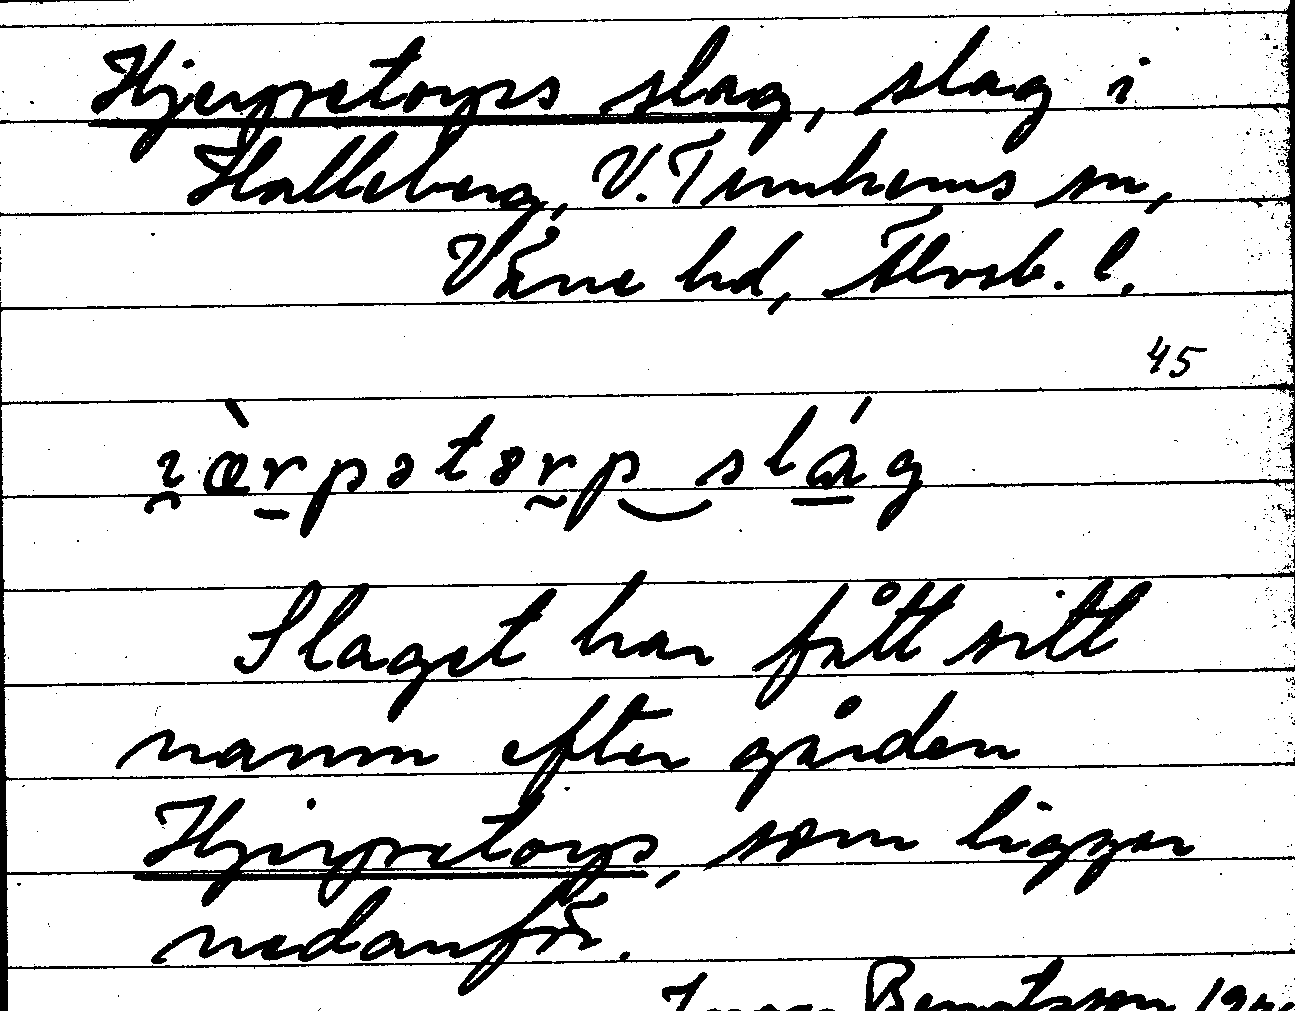 Hjerpetorps slag, slag i
Halleberg, V. Tunhems sn,
Väne hd, Älvsb. l.
45
ı̯æ̀r̠pətɵr̰p‿slág
Slaget har fått sitt
namn efter gården
Hjerpetorp, som ligger
nedanför.
Bengtsson